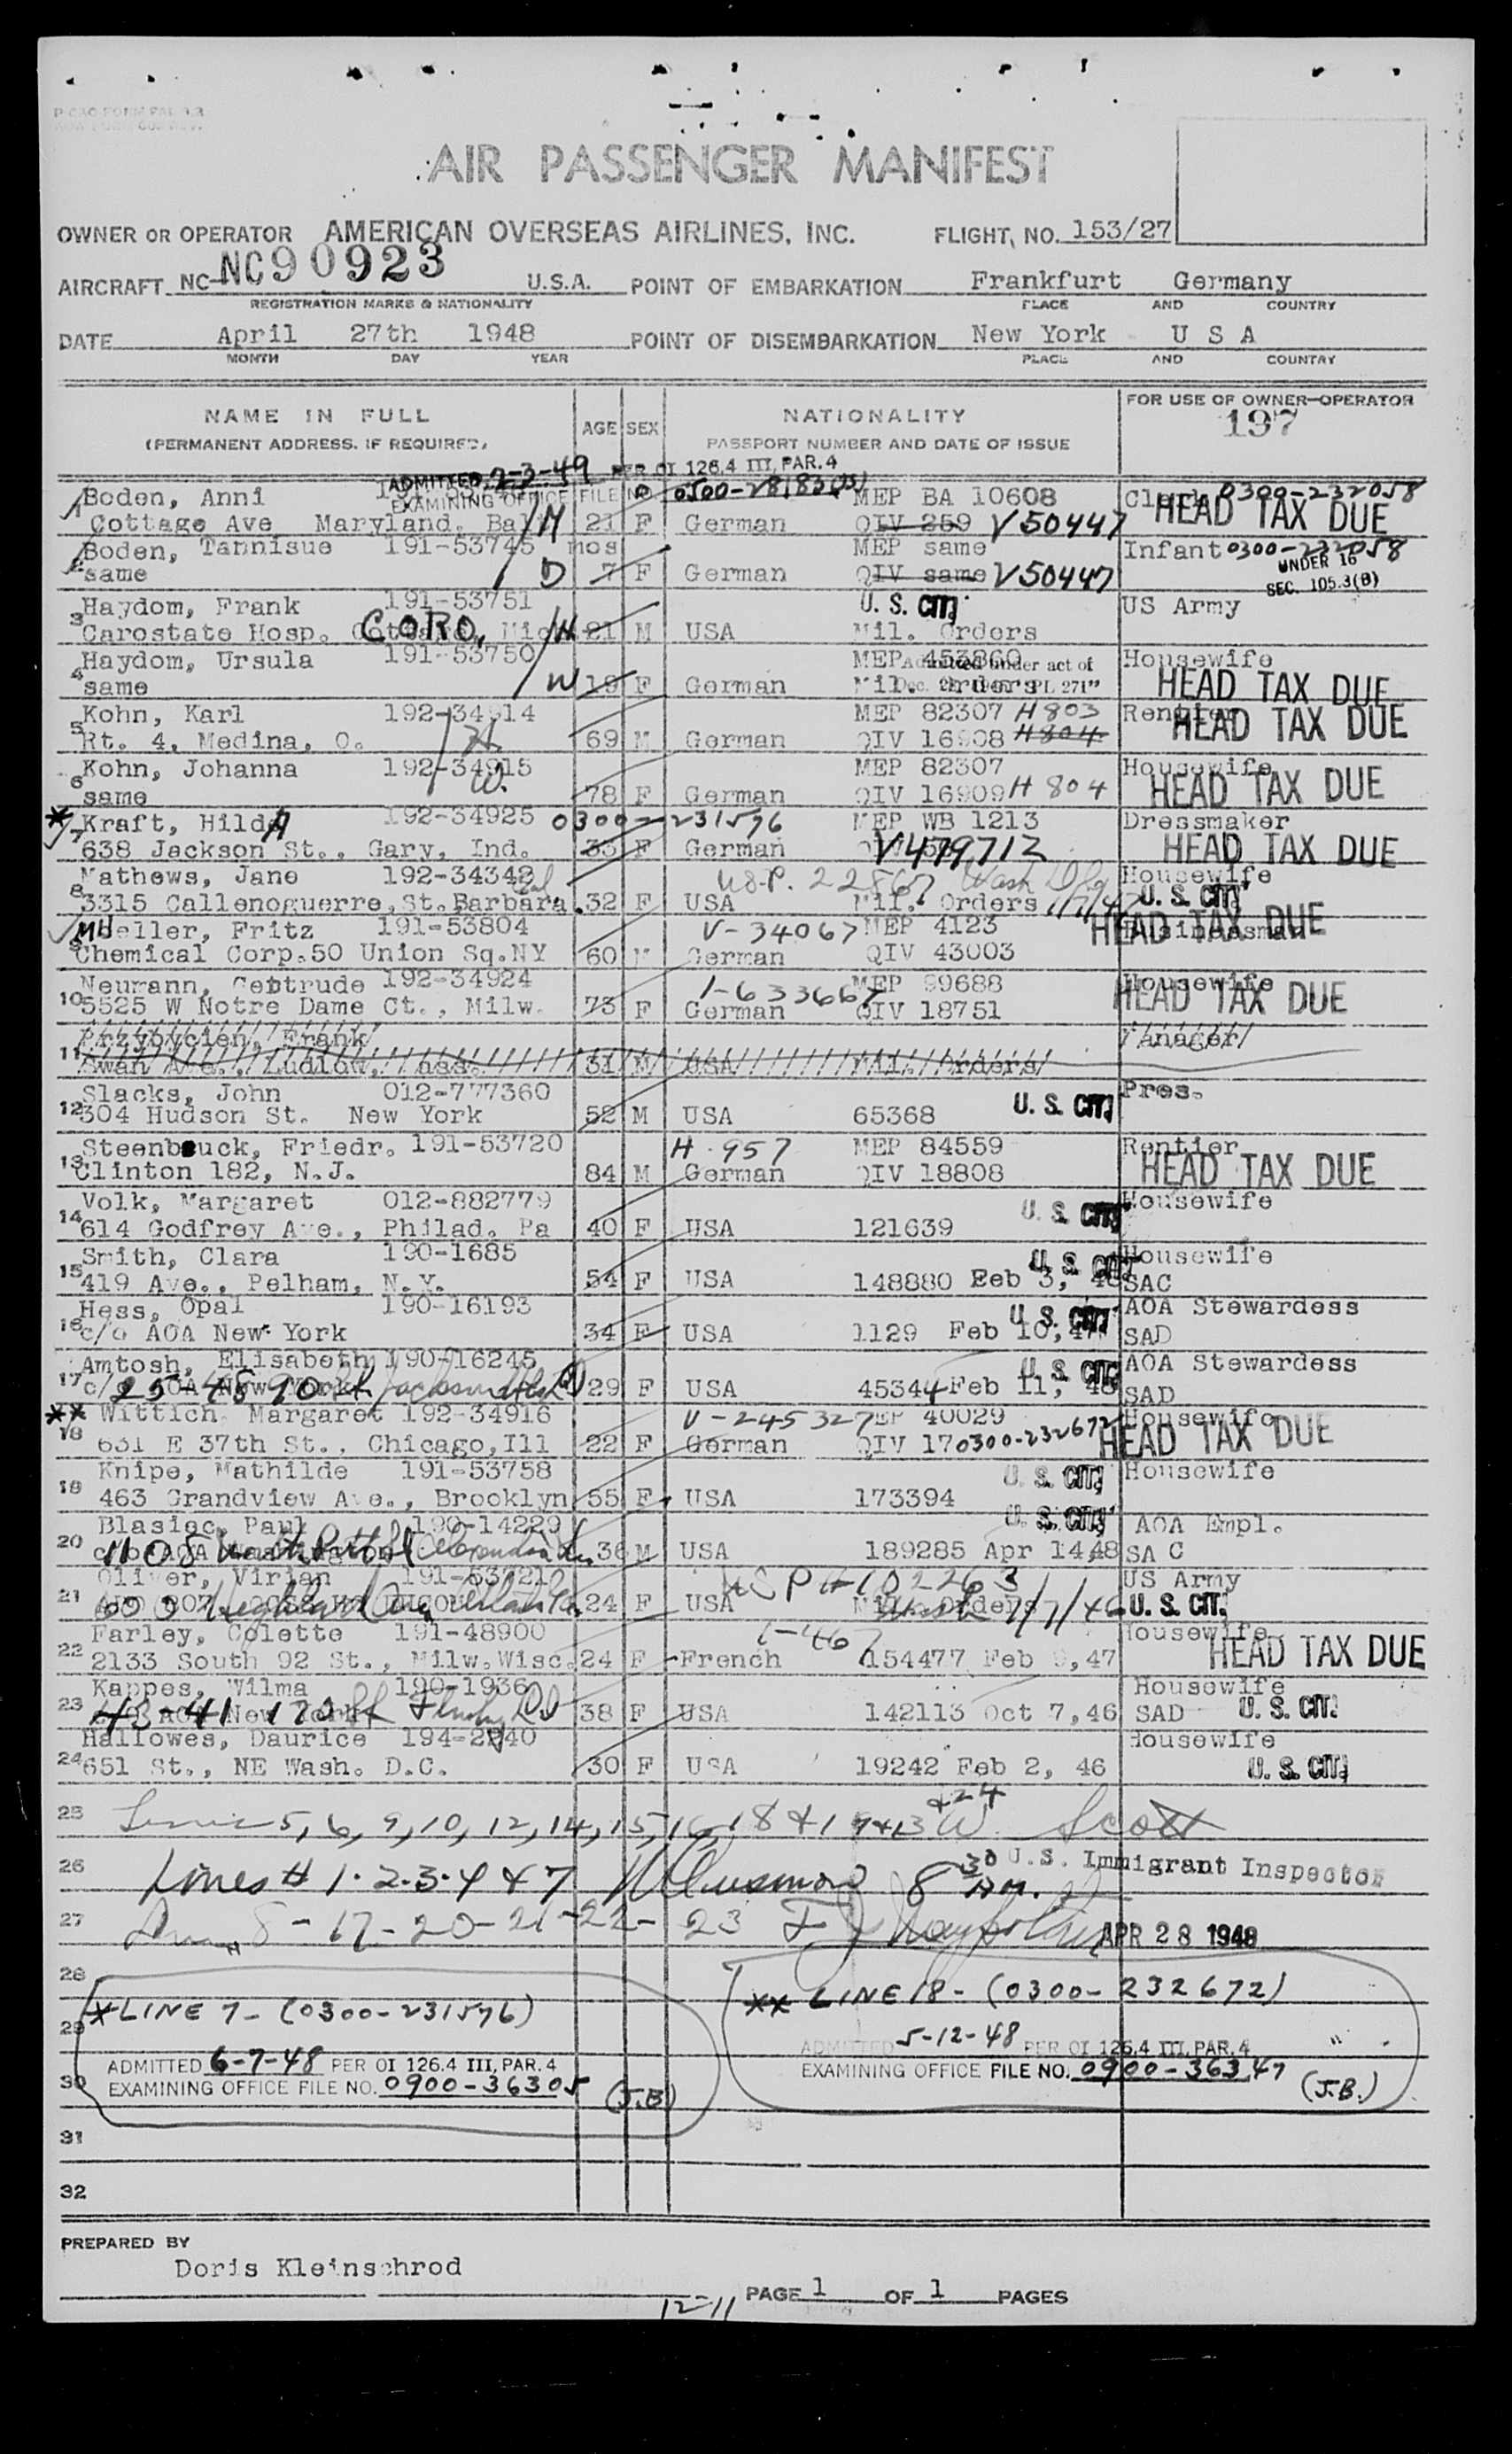 AIR PASSENGER MANIFEST
OWNER OR OPERATOR AMERICAN OVERSEAS AIRLINES, INC. FLIGHT, NO. 153/27
AIRCRAFT NC- NC90923 U.S.A. POINT OF EMBARKATION Frankfurt Germany
REGISTRATION MARKS & NATIONALITY PLACE AND COUNTRY
DATE April 27th 1948 POINT OF DISEMBARKATION New York U S A
MONTH DAY YEAR PLACE AND COUNTRY
NAME IN FULL AGE SEX NATIONALITY FOR USE OF OWNER-OPERATOR
(PERMANENT ADDRESS, IF REQUIRED) PASSPORT NUMBER AND DATE OF ISSUE 197
ADMITTED 2-3-49 PER OI 126.4 III, PAR. 4
EXAMINING OFFICE FILE NO
1 Boden, Anni MEP BA 10608 0300-232058
Cottage Ave Maryland. /M 21 F German QIV 259 V50447 HEAD TAX DUE
2 Boden, Tannisue 191-53745 mos MEP same Infant 0300-232058
same /D 7 F German QIV same V50447 UNDER 16
SEC. 105.3(B)
3 Haydom, Frank 191-53751 U. S. CIT. US Army
Carostate Hosp. CORO, /H 21 M USA Mil. Orders
4 Haydom, Ursula 191-53750 MEP 453860 Admitted under act of Housewife
same /W 19 F German Mil. Orders PL 271" HEAD TAX DUE
5 Kohn, Karl 192-34914 MEP 82307 H803 Rentier
Rt. 4, Medina, O. /H 69 M German QIV 16908 H804 HEAD TAX DUE
6 Kohn, Johanna 192-34915 MEP 82307 Housewife
same /W. 78 F German QIV 16909 H 804 HEAD TAX DUE
* 7 Kraft, HildA 192-34925 0300-231576 MEP WB 1213 Dressmaker
638 Jackson St., Gary, Ind. 33 F German V479712 HEAD TAX DUE
8 Mathews, Jane 192-34342 US.P. 22867 Wash Housewife
3315 Callenoguerre, St. Barbara. 32 F USA Mil. Orders U. S. CIT.
9 Mueller, Fritz 191-53804 V-34067 MEP 4123 Businessman HEAD TAX DUE
Chemical Corp. 50 Union Sq. NY 60 M German QIV 43003
10 Neumann, Gertrude 192-34924 1-633667 MEP 99688 Housewife
5525 W Notre Dame Ct., Milw. 73 F German QIV 18751 HEAD TAX DUE
11 Przybycien, Frank Manager
Swan Ave., Ludlow, Mass. 31 M USA Mil. Orders
12 Slacks, John 012-777360 U. S. CIT. Pres.
304 Hudson St. New York 52 M USA 65368
13 Steenbeuck, Friedr. 191-53720 H-957 MEP 84559 Rentier
Clinton 182, N.J. 84 M German QIV 18808 HEAD TAX DUE
14 Volk, Margaret 012-882779 U. S. CIT. Housewife
614 Godfrey Ave., Philad. Pa 40 F USA 121639
15 Smith, Clara 190-1685 U. S. CIT. Housewife
419 Ave., Pelham, N.Y. 54 F USA 148880 Feb 3, 48 SAC
16 Hess, Opal 190-16193 U. S. CIT. AOA Stewardess
c/o AOA New York 34 F USA 1129 Feb 10, 47 SAD
17 Amtosh, Elisabeth 190-16245 U. S. CIT. AOA Stewardess
c/o AOA New York 29 F USA 45344 Feb 11, 48 SAD
** 18 Wittich, Margaret 192-34916 V-245327 MEP 40029 Housewife
631 E 37th St., Chicago, Ill 22 F German QIV 17 0300-232672 HEAD TAX DUE
19 Knipe, Mathilde 191-53758 U. S. CIT. Housewife
463 Grandview Ave., Brooklyn 55 F USA 173394
20 Blasiec, Paul 190-14229 U. S. CIT. AOA Empl.
c/o AOA 36 M USA 189285 Apr 14,48 SA C
21 Oliver, Virian 191-537212 USP # 102263 US Army
24 F USA Mil. Orders 7/7/46 U. S. CIT.
22 Farley, Colette 191-48900 Housewife
2133 South 92 St., Milw. Wisc. 24 F French 154477 Feb 9,47 HEAD TAX DUE
23 Kappes, Wilma 190-1936 Housewife
43-41 170 St Flushing 38 F USA 142113 Oct 7,46 SAD U. S. CIT.
24 Hallowes, Daurice 194-2240 Housewife
651 St., NE Wash. D.C. 30 F USA 19242 Feb 2, 46 U. S. CIT.
25 5, 6, 9, 10, 12, 14, 15, 16, 18 & 19 & 13 & 24 W. Scott
26 Lines # 1-2-3-4 & 7 8 30 AM. U.S. Immigrant Inspector
27 8-17-20-21-22-23 APR 28 1948
28 ** LINE 18 - (0300-232672)
29 * LINE 7 - (0300-231576)
ADMITTED 5-12-48 PER OI 126.4 III, PAR. 4
ADMITTED 6-7-48 PER OI 126.4 III, PAR. 4
EXAMINING OFFICE FILE NO. 0900-36347 (J.B.)
30 EXAMINING OFFICE FILE NO. 0900-36305 (J.B)
31
32
PREPARED BY
Doris Kleinschrod
PAGE 1 OF 1 PAGES
12-11